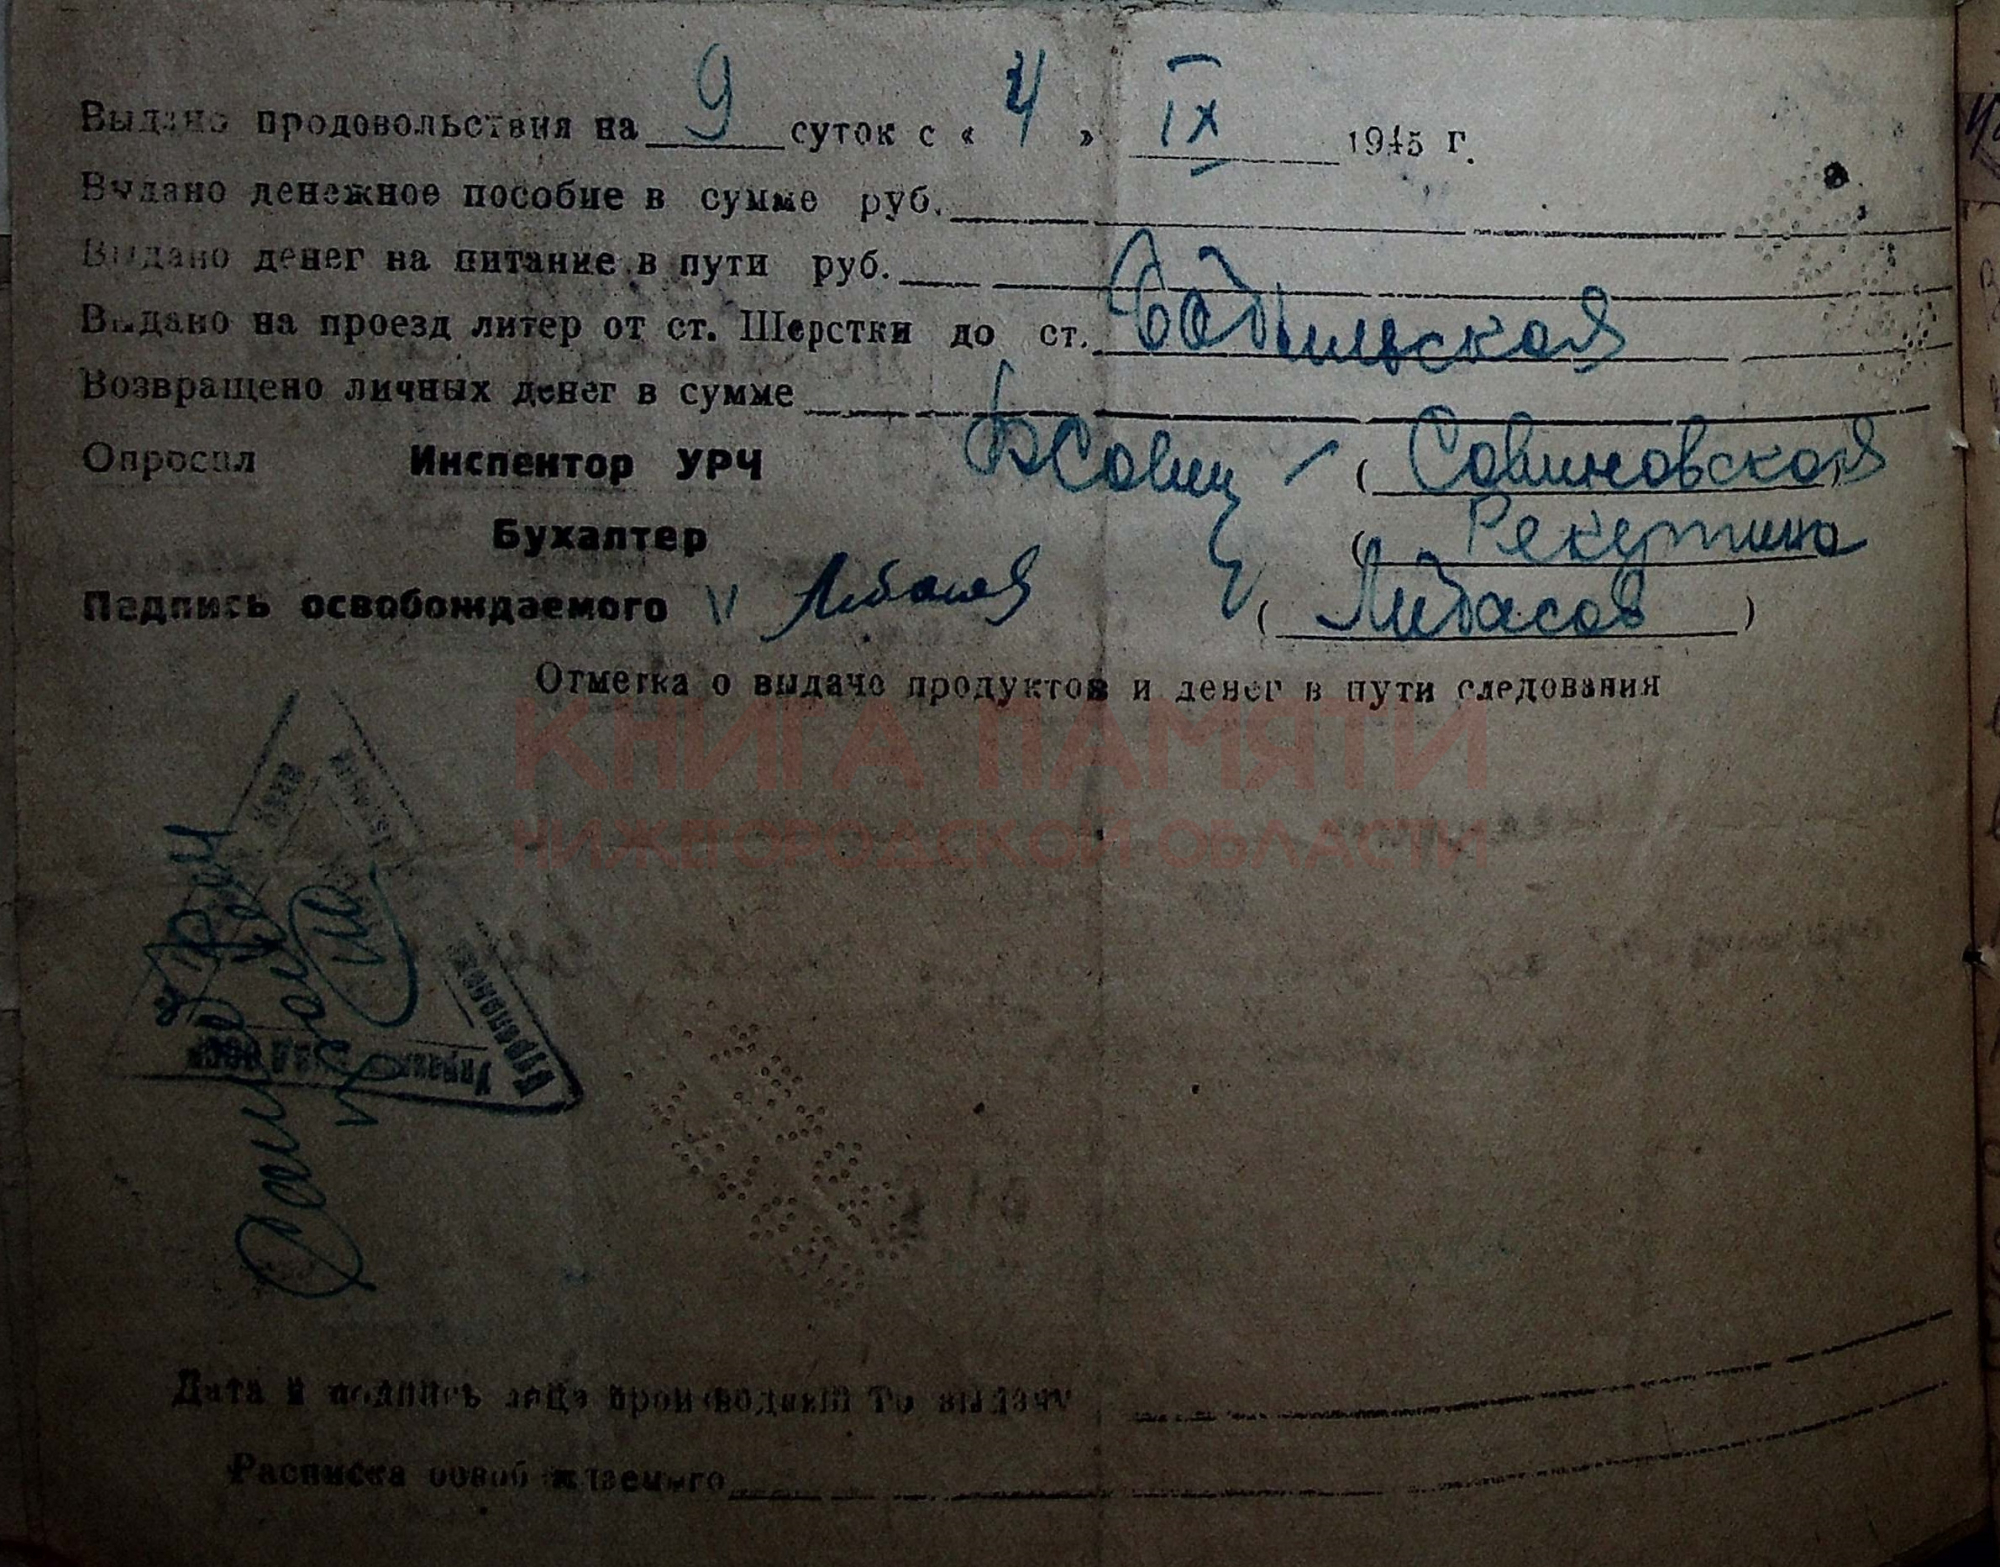 Выдано продовольствия на 9 суток с « 4 » IX 1945 г.
Выдано денежное пособие в сумме руб.
Выдано денег на питание в пути руб.
Выдано на проезд литер от ст. Шерстки до ст.
Возвращено личных денег в сумме
Опросил Инспектор УРЧ (Савиновская)
Бухалтер ( Рекутина
Подпись освобождаемого (Либасов)
Отметка о выдаче продуктов и денег в пути следования
КНИГА ПАМЯТИ
НИЖЕГОРОДСКОЙ ОБЛАСТИ
Дата и подпись лица производящ го выдачу
Расписка освобождаемого